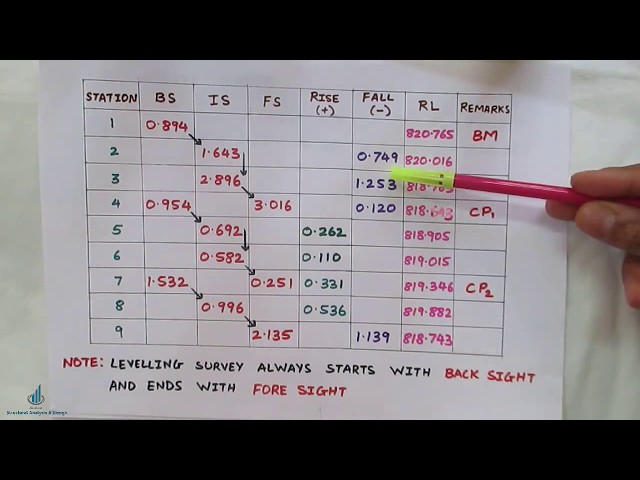 STATION BS IS FS RISE (+) FALL (-) RL REMARKS
1 0.894 820.765 BM
2 1.643 0.749 820.016
3 2.896 1.253
4 0.954 3.016 0.120 818.643 CP1
5 0.692 0.262 818.905
6 0.582 0.110 819.015
7 1.532 0.251 0.331 819.346 CP2
8 0.996 0.536 819.882
9 2.135 1.139 818.743
NOTE: LEVELLING SURVEY ALWAYS STARTS WITH BACK SIGHT
AND ENDS WITH FORE SIGHT
Structural Analysis & Design